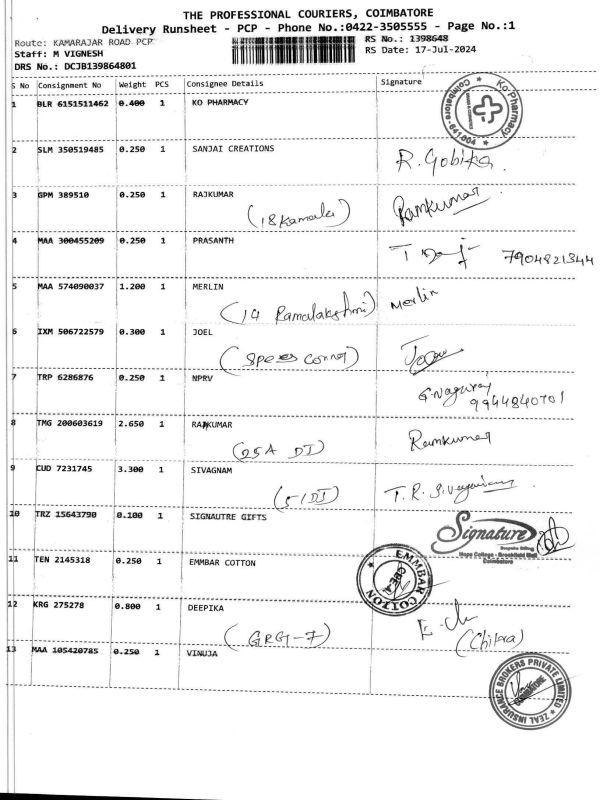 THE PROFESSIONAL COURIERS, COIMBATORE
Delivery Runsheet - PCP - Phone No.:0422-3505555 - Page No.:1
Route: KAMARAJAR ROAD PCP RS No.: 1398648
Staff: M VIGNESH RS Date: 17-Jul-2024
DRS No.: DCJB139864801
S No Consignment No Weight PCS Consignee Details Signature
1 BLR 6151511462 0.400 1 KO PHARMACY
Ko-Pharmacy Coimbatore-641 004
2 SLM 350519485 0.250 1 SANJAI CREATIONS R. Gobika
3 GPM 389510 0.250 1 RAJKUMAR Ramkumar
(18 Kamala)
4 MAA 300455209 0.250 1 PRASANTH 7904821344
5 MAA 574090037 1.200 1 MERLIN Merlin
(14 Ramalakshmi)
6 IXM 506722579 0.300 1 JOEL
7 TRP 6286876 0.250 1 NPRV G. Nagaraj
9944840701
8 TMG 200603619 2.650 1 RAJKUMAR Ramkumar
(25A DI)
9 CUD 7231745 3.300 1 SIVAGNAM
(51 DI)
10 TRZ 15643790 0.100 1 SIGNAUTRE GIFTS Signature
Hope College - Brookfield Mall
Coimbatore
11 TEN 2145318 0.250 1 EMMBAR COTTON
EMMBAR COTTON CBE-4
12 KRG 275278 0.800 1 DEEPIKA
(GRG-7) (Chitra)
13 MAA 105420785 0.250 1 VINUJA
ZEAL INSURANCE BROKERS PRIVATE LIMITED COIMBATORE